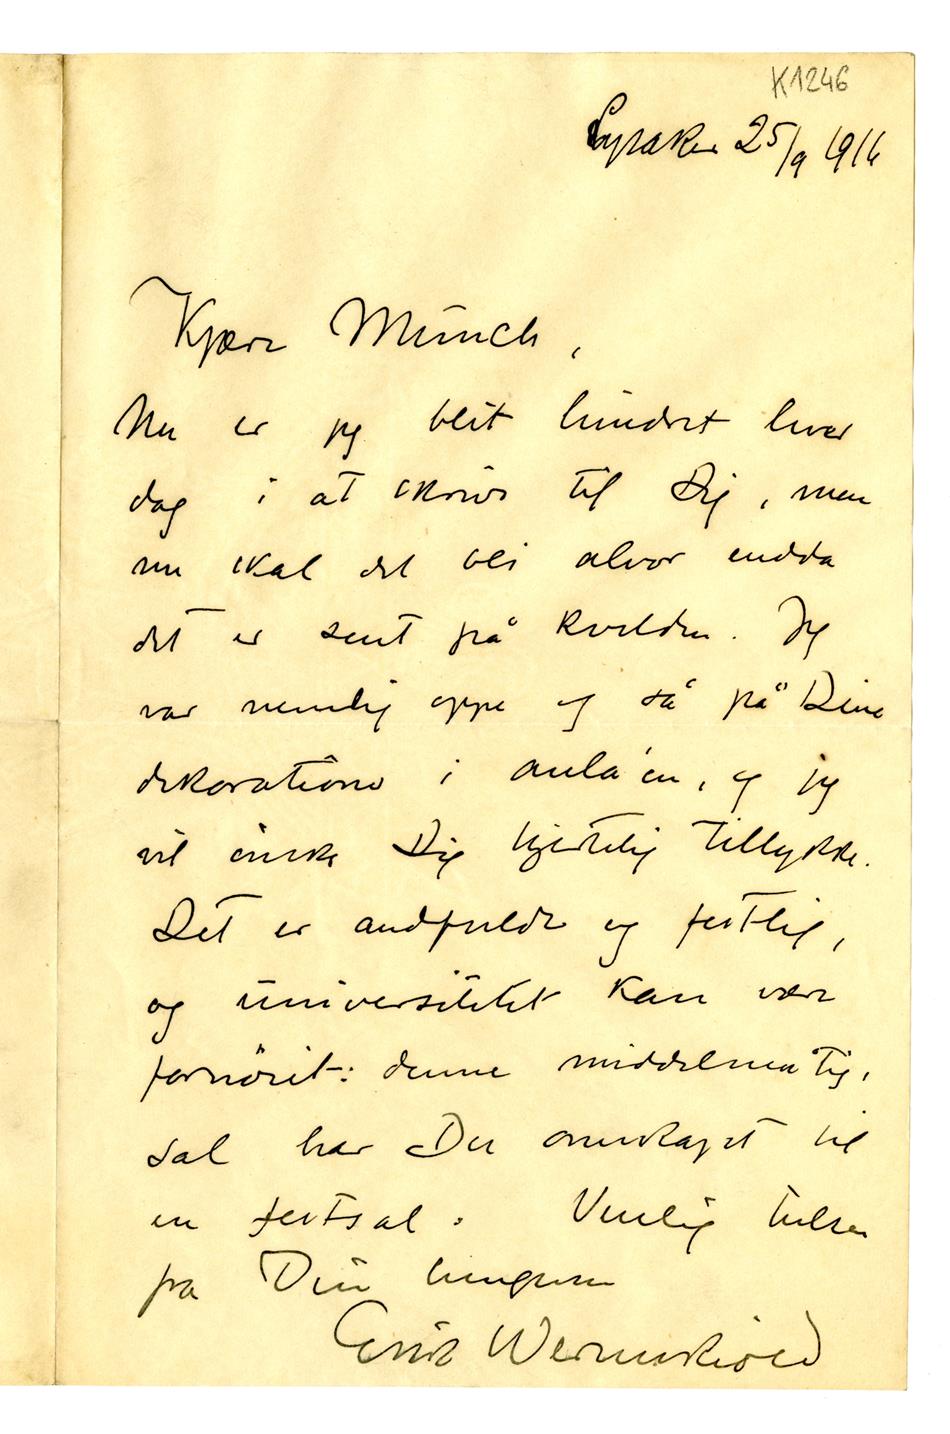 K1246
Lysaker 25/9 1916
Kjære Munch,
Nu er jeg blit hindret hver
dag i at skrive til Dig, men
nu skal det bli alvor endda
det er sent på kvelden. Jeg
var nemlig oppe og så på Dine
dekorationer i aula'en, og jeg
vil ønske Dig hjertelig tillykke.
Det er åndfuldt og festlig,
og universitetet kan være
fornøiet: denne middelmådig,
sal har Du omskapt til
en festsal. Venlig hilsen
fra Din hengivne
Erik Werenskiold